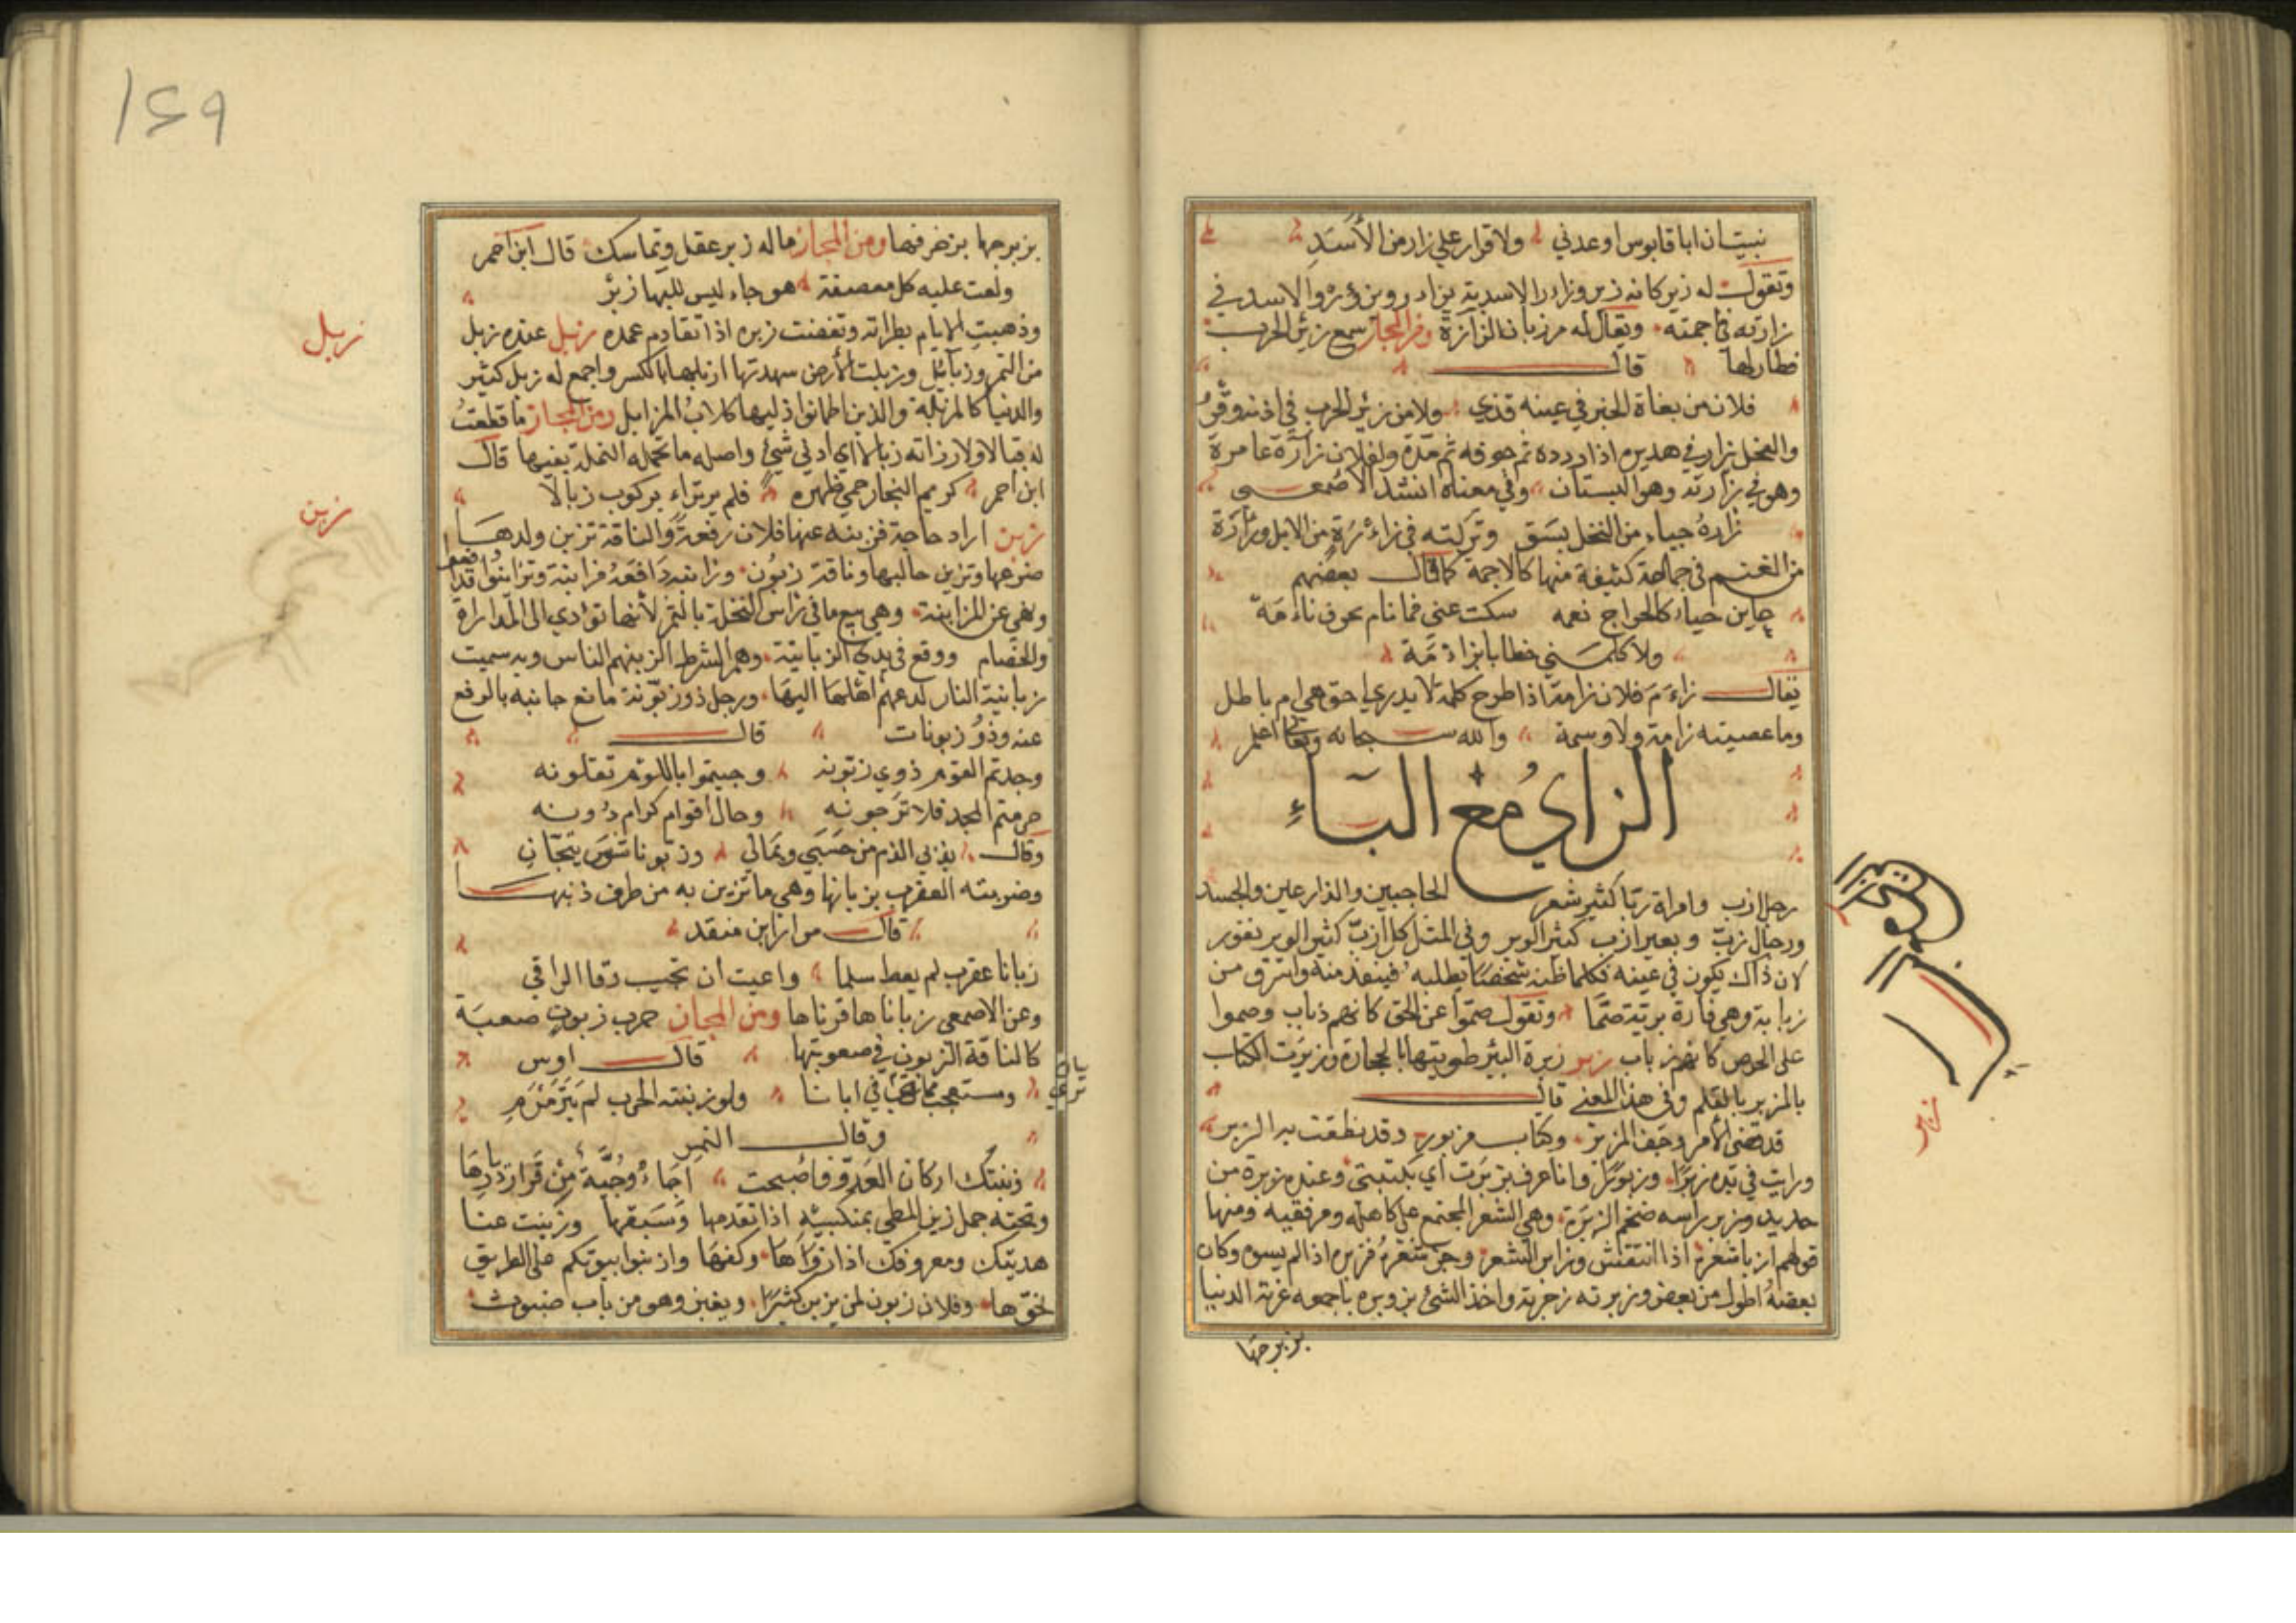 نبيت ان ابا قابوس اوعدني ولا قرار علي زار من الأسد
وتقول له زير كانه زير وزار الاسد يزار ويزؤر والاسد في
زارته في اجمته ويقال له مرزبان الزارة ومن المجاز سمع زئير الحرب
فطار لها قال
فلان من بغاة الخير في عينه قذي ولا من زئير الحرب في اذنه وقر
والفحل يزار في هديره اذا ردده في جوفه ثم مده ولفلان زارة عامرة
وهو في زارته وهو البستان وفي معناه انشد الاصمعي
زارة جباء من النخل بسق وتركته في زاءرة من الابل وزارة
من الغنم في جماعة كثيفة منها كالاجمة كما قال بعضهم
كالحراج نعمه سكت عني فما نام بحرف ناءمة
ولا كلمني خطابا بزاءمة
يقال زاءم فلان زامة اذا طرح كلمة لا يدري احق هي ام باطل
وما عصيته زامة ولا وسمة والله سبحانه وتعالى اعلم
الزاي مع الباء
رجل ازب وامراة زبا كثير شعر الحاجبين والذارعين والجسد
ورجال زب وبعير ازب كثير الوبر وفي المثل كل ازب كثير الوبر نفور
لان ذاك يكون في عينه فكلما ظنه شخصا يطلبه فينفد منه واسرق من
زبابة وهي فارة برية صما وتقول صموا عن الحق كانهم ذباب وصموا
على الحرص كانهم زباب زبر زبرة البئر طويتها بالحجارة وزبرت الكتاب
بالمزبر بالقلم وفي هذا المعني قال
قد قضي الأمر وجف المزبر وكتاب مزبور وقد نطقت به الزبر
ورايت في يده زبرا وزبورا وانا اعرف بزبرت اي بكتبتي وعنده زبرة من
حديد وزبر براسه ضخم الزبرة وهي الشعر المجتمع على كاهله ومرفقيه ومنها
قولهم ازبا شعره اذا انتفش وزابر الشعر وجز شعره فزبره اذا لم يسوه وكان
بعضه اطول من بعض وزبرته زجرته واخذ الشئ بزوبره باجمعه غرته الدنيا
بزبرجها
زبر
١٤٩
بزبرجها بزخرفها ومن المجاز ما له زبر عقل وتماسك قال ابن احمر
ولهت عليه كل معصفة هوجاء ليس للبها زبر
وذهبت الايام بطرائه وتغضنت زبره اذا تقادم عهده زبل عنده زبل
من التمر وزبائل وزبلت الأرض سمدتها ازبلها بالكسر واجمع له زبل كثير
والدنيا كالمزبلة والذين اطمانوا اليها كلاب المزابل ومن المجاز ما قطعت
له قبالا ولا رزاته زبالا اي ادني شئ واصله ما تحمله النملة بفيها قال
ابن احمر كريم النجار حمي ظهره فلم يرتزاء بركوب زبالا
زبن اراد حاجة فزبنه عنها فلان دفعه والناقة تزبن ولدها
ضرعها وتزبن حالبها وناقة زبون وزابنه دافعه مزابنة وتزابنوا تدافعوا
ونهي عن المزابنة وهي بيع ما في راس النخلة بالتمر لأنها تؤدي الى المدارأة
والخصام ووقع في يدي الزبانية وهم الشرط الزبنهم الناس وبه سميت
زبانية النار لدعهم اهلها اليها ورجل ذو زبونة مانع جانبه بالدفع
عنه وذو زبونات قال
وجدتم القوم ذوي زبونه وجيتموا باللؤم تفعلونه
حرمتم المجد فلا ترجونه وحال أقوام كرام دونه
وقال بذبي الذم من حسبي ومالي وزبونات اشوس تيحان
وضربته العقرب بزبانها وهي ما تزبن به من طرف ذنبها
قال مرار ابن منقد
زبانا عقرب لم يعط سلما واعيت ان تجيب رقا الراقي
وعن الاصمعي زباناها قرناها ومن المجاز حرب زبون صعبة
كالناقة الزبون في صعوبتها قال اوس
ومستعجب مما ترى في اناتنا ولو زبنته الحرب لم يترمرم
وقال النمر
زبنتك اركان العدو فاصبحت اجاء وجبة من قرار ديارها
وتحته جمل زبن المطي بمنكبيه اذا تقدمها وسبقها وزبنت عنا
هديتك ومعروفك اذا زواها وكفها وازبنوا بيوتكم على الطريق
نحوها وفلان زبون لمن يزبن كثيرا ويغبن وهو من باب ضبوث
زبل
زبن